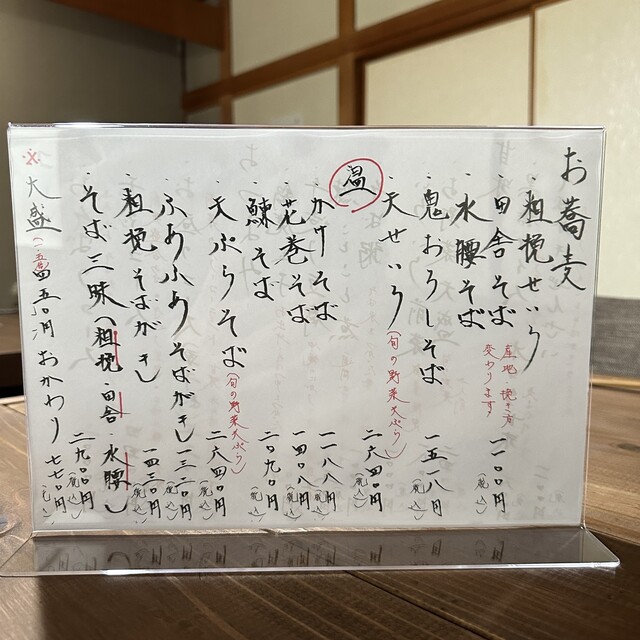 お蕎麦
・粗挽せいろ
・田舎そば 産地・挽き方変わります 一一〇〇円(税込)
・水腰そば
・鬼おろしそば 一五一八円(税込)
・天せいろ(旬の野菜天ぷら) 二六四〇円(税込)
温
・かけそば 一一八八円(税込)
・花巻そば 一四〇八円(税込)
・鰊そば 二〇九〇円(税込)
・天ぷらそば(旬の野菜天ぷら) 二六四〇円(税込)
・ふわふわそばがき 一三二〇円(税込)
・粗挽そばがき 一四三〇円(税込)
・そば三昧(粗挽・田舎・水腰) 二九〇〇円(税込)
※大盛 五五〇円 おかわり 七七〇円(税込)